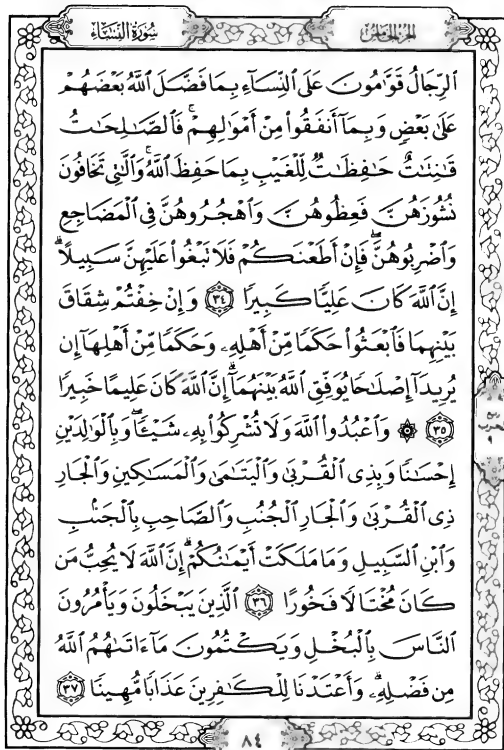 الجزء الخامس
سُورَةُ النِّسَاء
الرِّجَالُ قَوَّٰمُونَ عَلَى النِّسَآءِ بِمَا فَضَّلَ اللَّهُ بَعْضَهُمْ
عَلَىٰ بَعْضٍ وَبِمَآ أَنفَقُوا۟ مِنْ أَمْوَٰلِهِمْ ۚ فَٱلصَّٰلِحَٰتُ
قَٰنِتَٰتٌ حَٰفِظَٰتٌ لِّلْغَيْبِ بِمَا حَفِظَ ٱللَّهُ ۚ وَٱلَّٰتِى تَخَافُونَ
نُشُوزَهُنَّ فَعِظُوهُنَّ وَٱهْجُرُوهُنَّ فِى ٱلْمَضَاجِعِ
وَٱضْرِبُوهُنَّ ۖ فَإِنْ أَطَعْنَكُمْ فَلَا تَبْغُوا۟ عَلَيْهِنَّ سَبِيلًا ۗ
إِنَّ ٱللَّهَ كَانَ عَلِيًّا كَبِيرًا ٣٤ وَإِنْ خِفْتُمْ شِقَاقَ
بَيْنِهِمَا فَٱبْعَثُوا۟ حَكَمًا مِّنْ أَهْلِهِۦ وَحَكَمًا مِّنْ أَهْلِهَآ إِن
يُرِيدَآ إِصْلَٰحًا يُوَفِّقِ ٱللَّهُ بَيْنَهُمَآ ۗ إِنَّ ٱللَّهَ كَانَ عَلِيمًا خَبِيرًا
٣٥ ۞ وَٱعْبُدُوا۟ ٱللَّهَ وَلَا تُشْرِكُوا۟ بِهِۦ شَيْـًٔا ۖ وَبِٱلْوَٰلِدَيْنِ
إِحْسَٰنًا وَبِذِى ٱلْقُرْبَىٰ وَٱلْيَتَٰمَىٰ وَٱلْمَسَٰكِينِ وَٱلْجَارِ
ذِى ٱلْقُرْبَىٰ وَٱلْجَارِ ٱلْجُنُبِ وَٱلصَّاحِبِ بِٱلْجَنۢبِ
وَٱبْنِ ٱلسَّبِيلِ وَمَا مَلَكَتْ أَيْمَٰنُكُمْ ۗ إِنَّ ٱللَّهَ لَا يُحِبُّ مَن
كَانَ مُخْتَالًا فَخُورًا ٣٦ ٱلَّذِينَ يَبْخَلُونَ وَيَأْمُرُونَ
ٱلنَّاسَ بِٱلْبُخْلِ وَيَكْتُمُونَ مَآ ءَاتَىٰهُمُ ٱللَّهُ
مِن فَضْلِهِۦ ۗ وَأَعْتَدْنَا لِلْكَٰفِرِينَ عَذَابًا مُّهِينًا ٣٧
٨٤